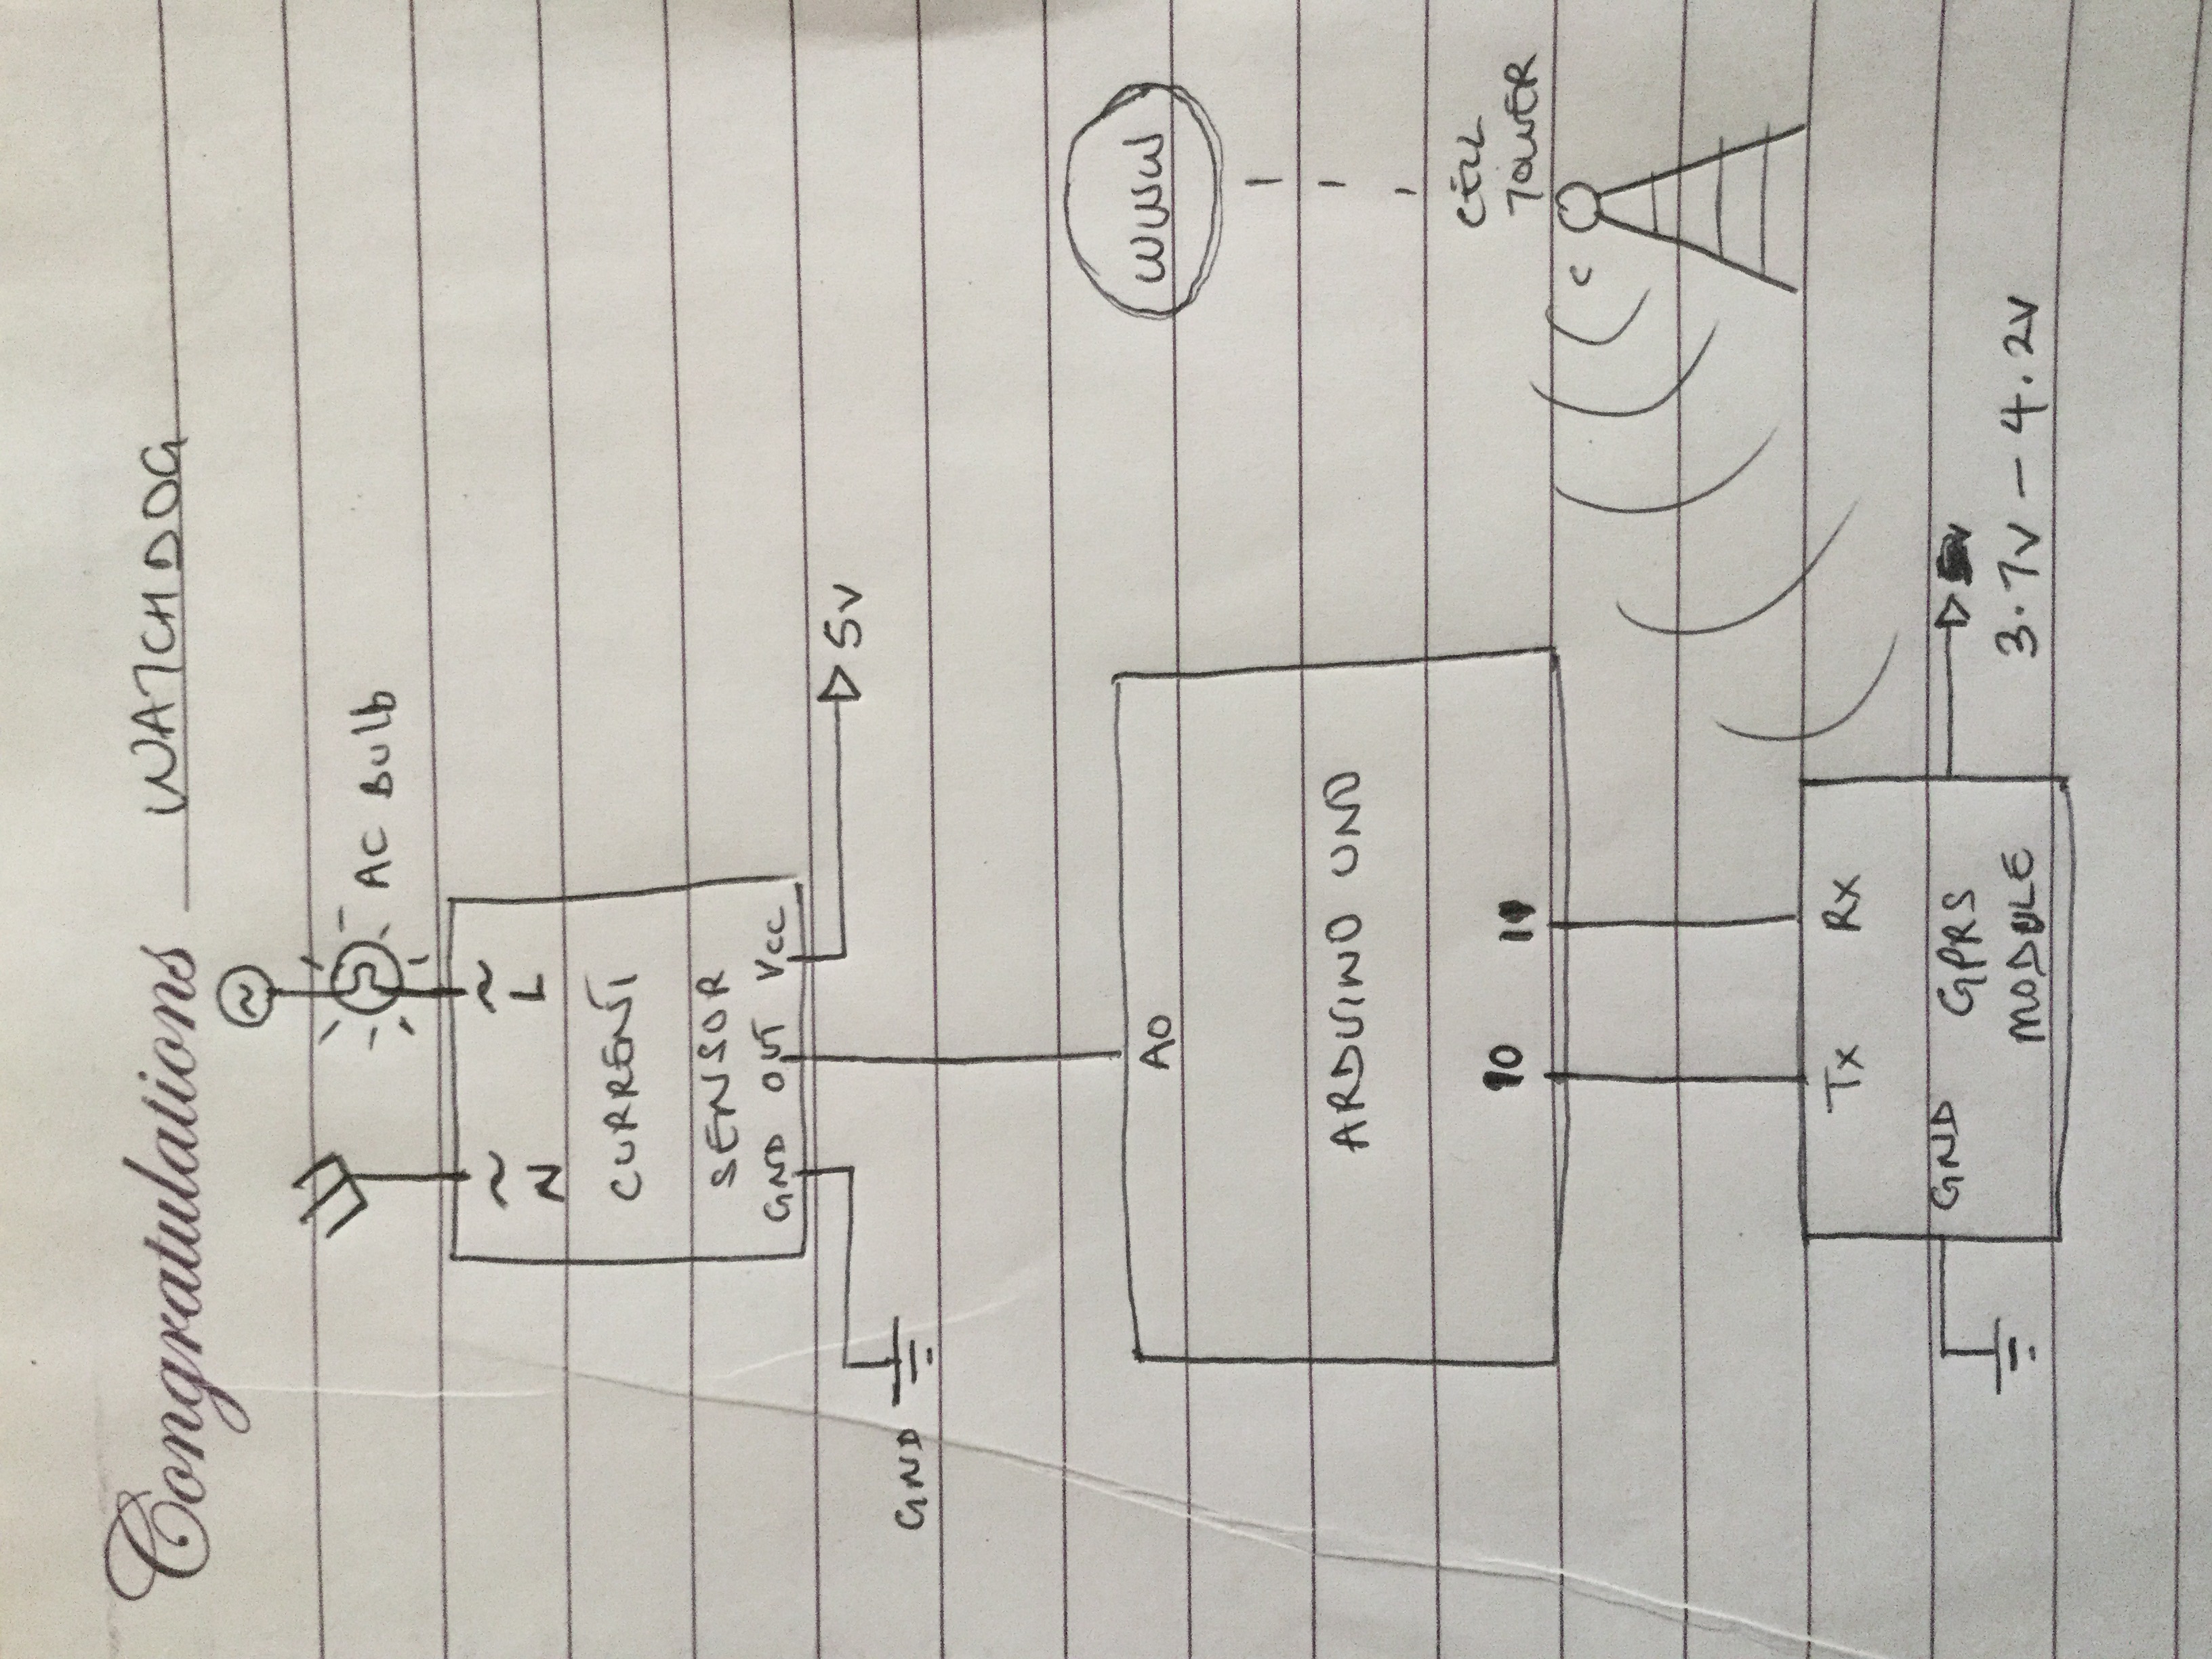 Congratulations WATCHDOG
~
AC Bulb
~ ~
N L
CURRENT
SENSOR
GND OUT VCC
5V
GND
A0
WWW
ARDUINO UNO
CELL
TOWER
10 11
Tx Rx
GND GPRS
MODULE
3.7V - 4.2V